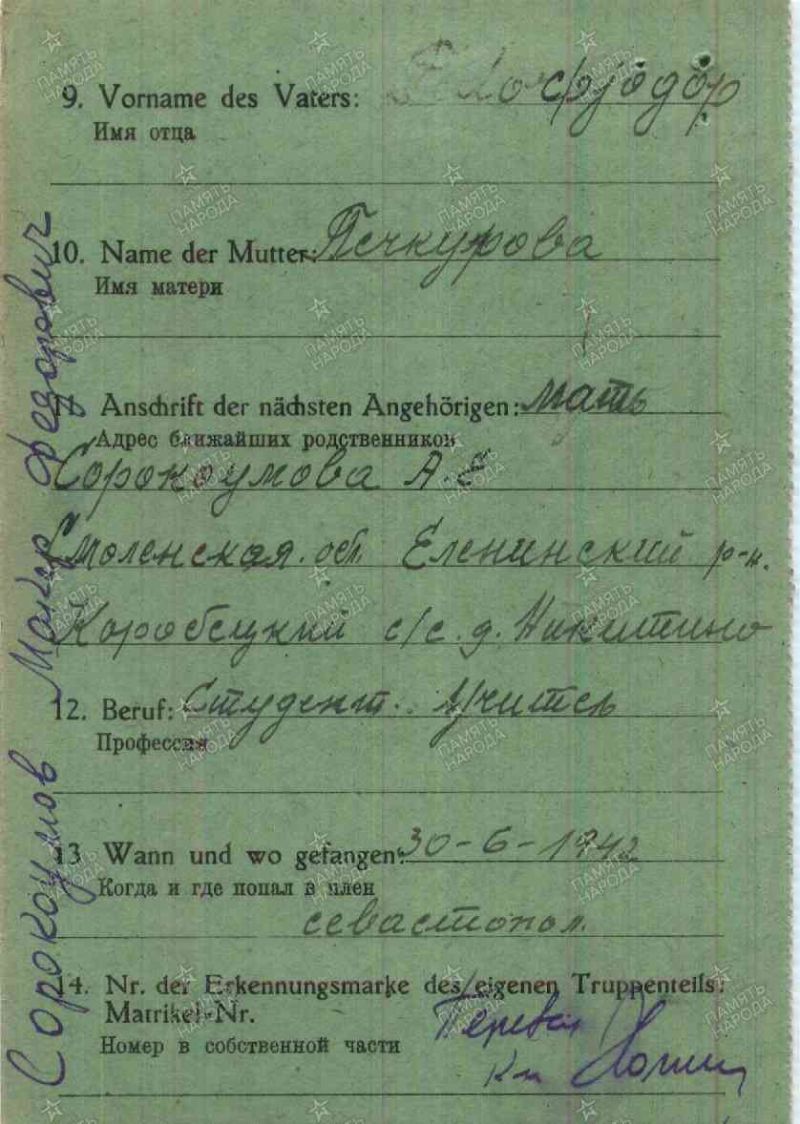 9. Vorname des Vaters: фјодор
Имя отца
10. Name der Mutter: Печкурова
Имя матери
11. Anschrift der nächsten Angehörigen: Мать
Адрес ближайших родственников
Сорокоумова А. Е
Смоленская. обл. Еленинский р-н.
Коробецкий с/с. д. Никитино
12. Beruf: Студент. Учитель
Профессия
13 Wann und wo gefangen: 30-6-1942
Когда и где попал в плен
севастопол.
14. Nr. der Erkennungsmarke des eigenen Truppenteils:
Matrikel-Nr.
Номер в собственной части
Перевел
Сорокоумов Макар Федорович
ПАМЯТЬ НАРОДА